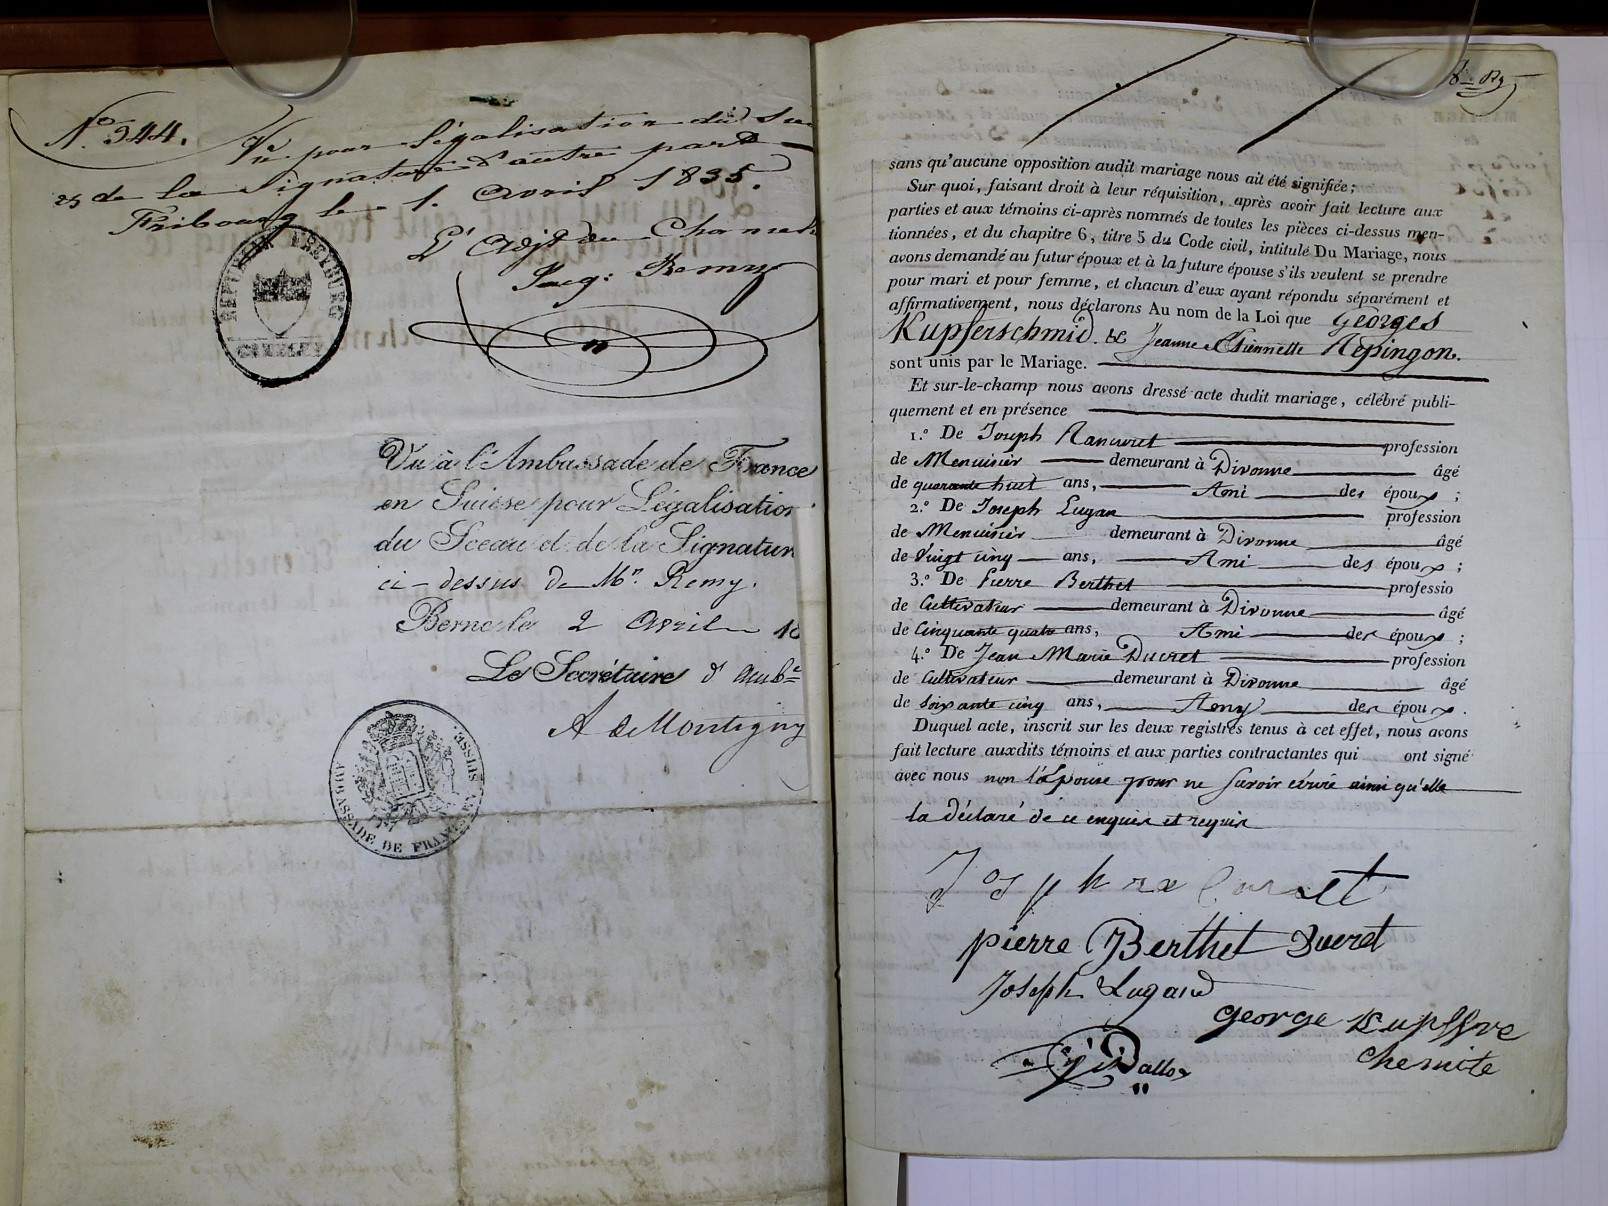 N.° 544.
Vu pour légalisation du
25 de la Signature d'autre part
Fribourg le 1. Avril 1835.
L'
Jacq: Remy
FREYBURG
CANZLEY
Vu à l'Ambassade de France
en Suisse pour Légalisation
du Sceau et de la Signature
ci-dessus de Mr. Remy.
Berne le 2 Avril 18
Le Secrétaire d'Amb.e
A de Montigny
AMBASSADE DE FRANCE EN SUISSE.
sans qu'aucune opposition audit mariage nous ait été signifiée;
Sur quoi, faisant droit à leur réquisition, après avoir fait lecture aux
parties et aux témoins ci-après nommés de toutes les pièces ci-dessus men-
tionnées, et du chapitre 6, titre 5 du Code civil, intitulé Du Mariage, nous
avons demandé au futur époux et à la future épouse s'ils veulent se prendre
pour mari et pour femme, et chacun d'eux ayant répondu séparément et
affirmativement, nous déclarons Au nom de la Loi que Georges
Kupferschmid. & Jeanne Etiennette Repingon.
sont unis par le Mariage.
Et sur-le-champ nous avons dressé acte dudit mariage, célébré publi-
quement et en présence
1.° De Joseph profession
de Menuisier demeurant à Divonne âgé
de quarante huit ans, Ami des époux ;
2.° De Joseph Lugan profession
de Menuisier demeurant à Divonne âgé
de Vingt cinq ans, Ami des époux ;
3.° De Pierre Berthet professio
de Cultivateur demeurant à Divonne âgé
de Cinquante quatre ans, Ami des époux ;
4.° De Jean Marie Ducret profession
de Cultivateur demeurant à Divonne âgé
de soixante cinq ans, Amy des époux.
Duquel acte, inscrit sur les deux registres tenus à cet effet, nous avons
fait lecture auxdits témoins et aux parties contractantes qui ont signé
avec nous non l'Epouse pour ne savoir écrire ainsi qu'elle
la déclaré de ce enquise et requise
Joseph
pierre Berthet Ducret
Joseph Lugand
George Kupffre
chemite